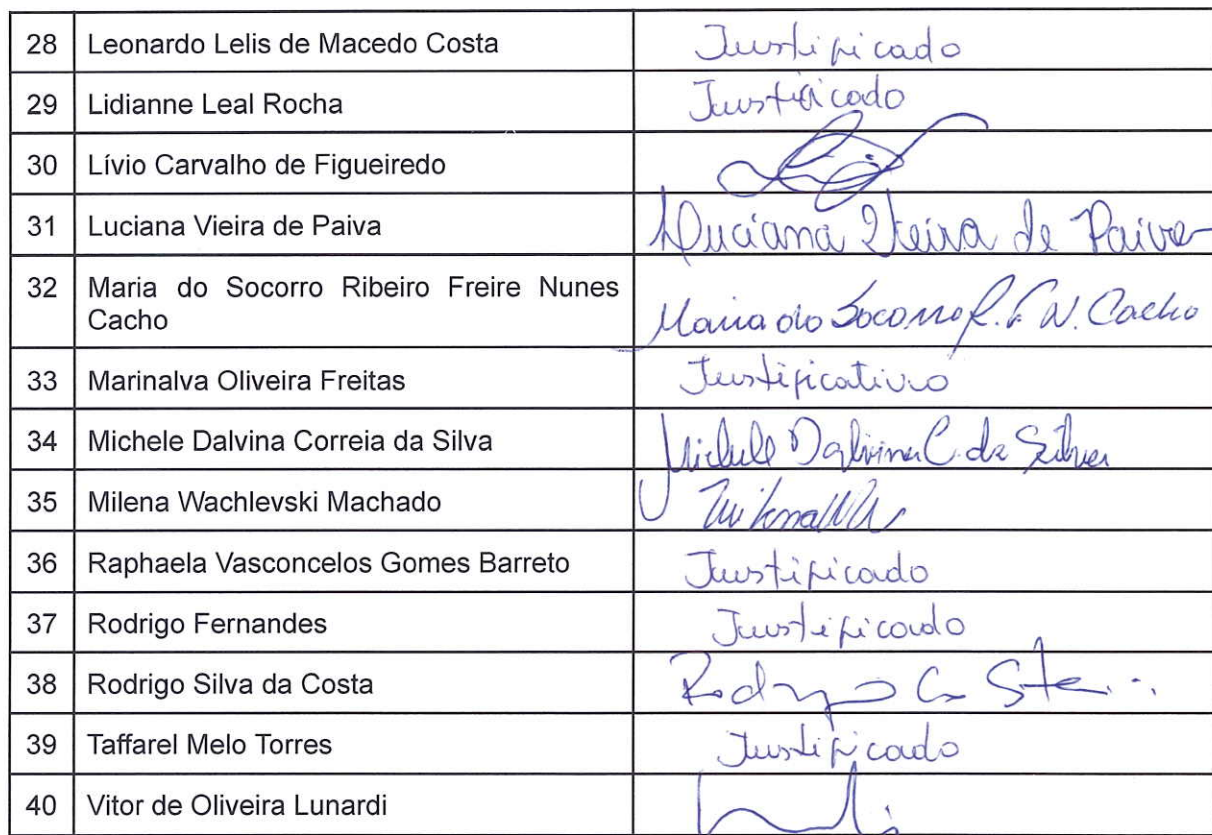 28 Leonardo Lelis de Macedo Costa Justificado
29 Lidianne Leal Rocha Justificado
30 Lívio Carvalho de Figueiredo
31 Luciana Vieira de Paiva Luciana Vieira de Paiva
32 Maria do Socorro Ribeiro Freire Nunes
Cacho Maria do Socorro R. F. N. Cacho
33 Marinalva Oliveira Freitas Justificativo
34 Michele Dalvina Correia da Silva Michele Dalvina C. da Silva
35 Milena Wachlevski Machado
36 Raphaela Vasconcelos Gomes Barreto Justificado
37 Rodrigo Fernandes Justificado
38 Rodrigo Silva da Costa Rodrigo
39 Taffarel Melo Torres Justificado
40 Vitor de Oliveira Lunardi